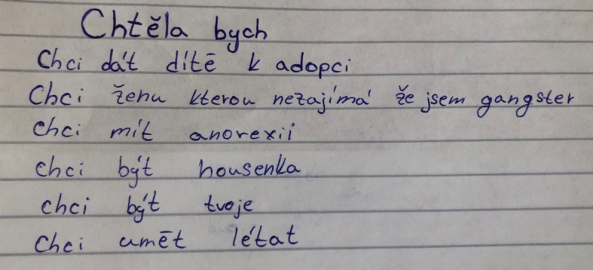 Chtěla bych
Chci dát dítě k adopci
Chci ženu kterou nezajímá že jsem gangster
Chci mít anorexii
chci být housenka
chci být tvoje
Chci umět létat